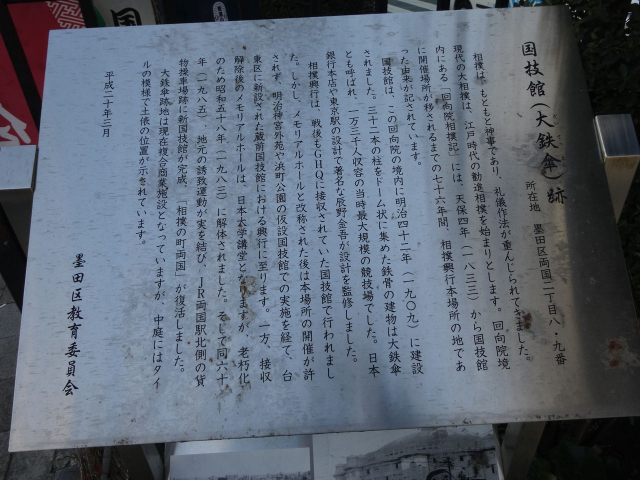 国技館（大鉄傘）跡
所在地　墨田区両国二丁目八・九番
相撲は、もともと神事であり、礼儀作法が重んじられてきました。
現代の大相撲は、江戸時代の勧進相撲を始まりとします。回向院境
内にある「回向院相撲記」には、天保四年（一八三三）から国技館
に開催場所が移されるまでの七十六年間、相撲興行本場所の地であ
った由来が記されています。
国技館は、この回向院の境内に明治四十二年（一九〇九）に建設
されました。三十二本の柱をドーム状に集めた鉄骨の建物は大鉄傘
とも呼ばれ、一万三千人収容の当時最大規模の競技場でした。日本
銀行本店や東京駅の設計で著名な辰野金吾が設計を監修しました。
相撲興行は、戦後もGHQに接収されていた国技館で行われまし
た。しかし、メモリアルホールと改称された後は本場所の開催が許
されず、明治神宮外苑や浜町公園の仮設国技館での実施を経て、台
東区に新設された蔵前国技館における興行に至ります。一方、接収
解除後のメモリアルホールは、日本大学講堂となりますが、老朽化
のため昭和五十八年（一九八三）に解体されました。そして同六十
年（一九八五）、地元の誘致運動が実を結び、JR両国駅北側の貨
物操車場跡に新国技館が完成、「相撲の町両国」が復活しました。
大鉄傘跡地は現在複合商業施設となっていますが、中庭にはタイ
ルの模様で土俵の位置が示されています。
平成二十年三月
墨田区教育委員会